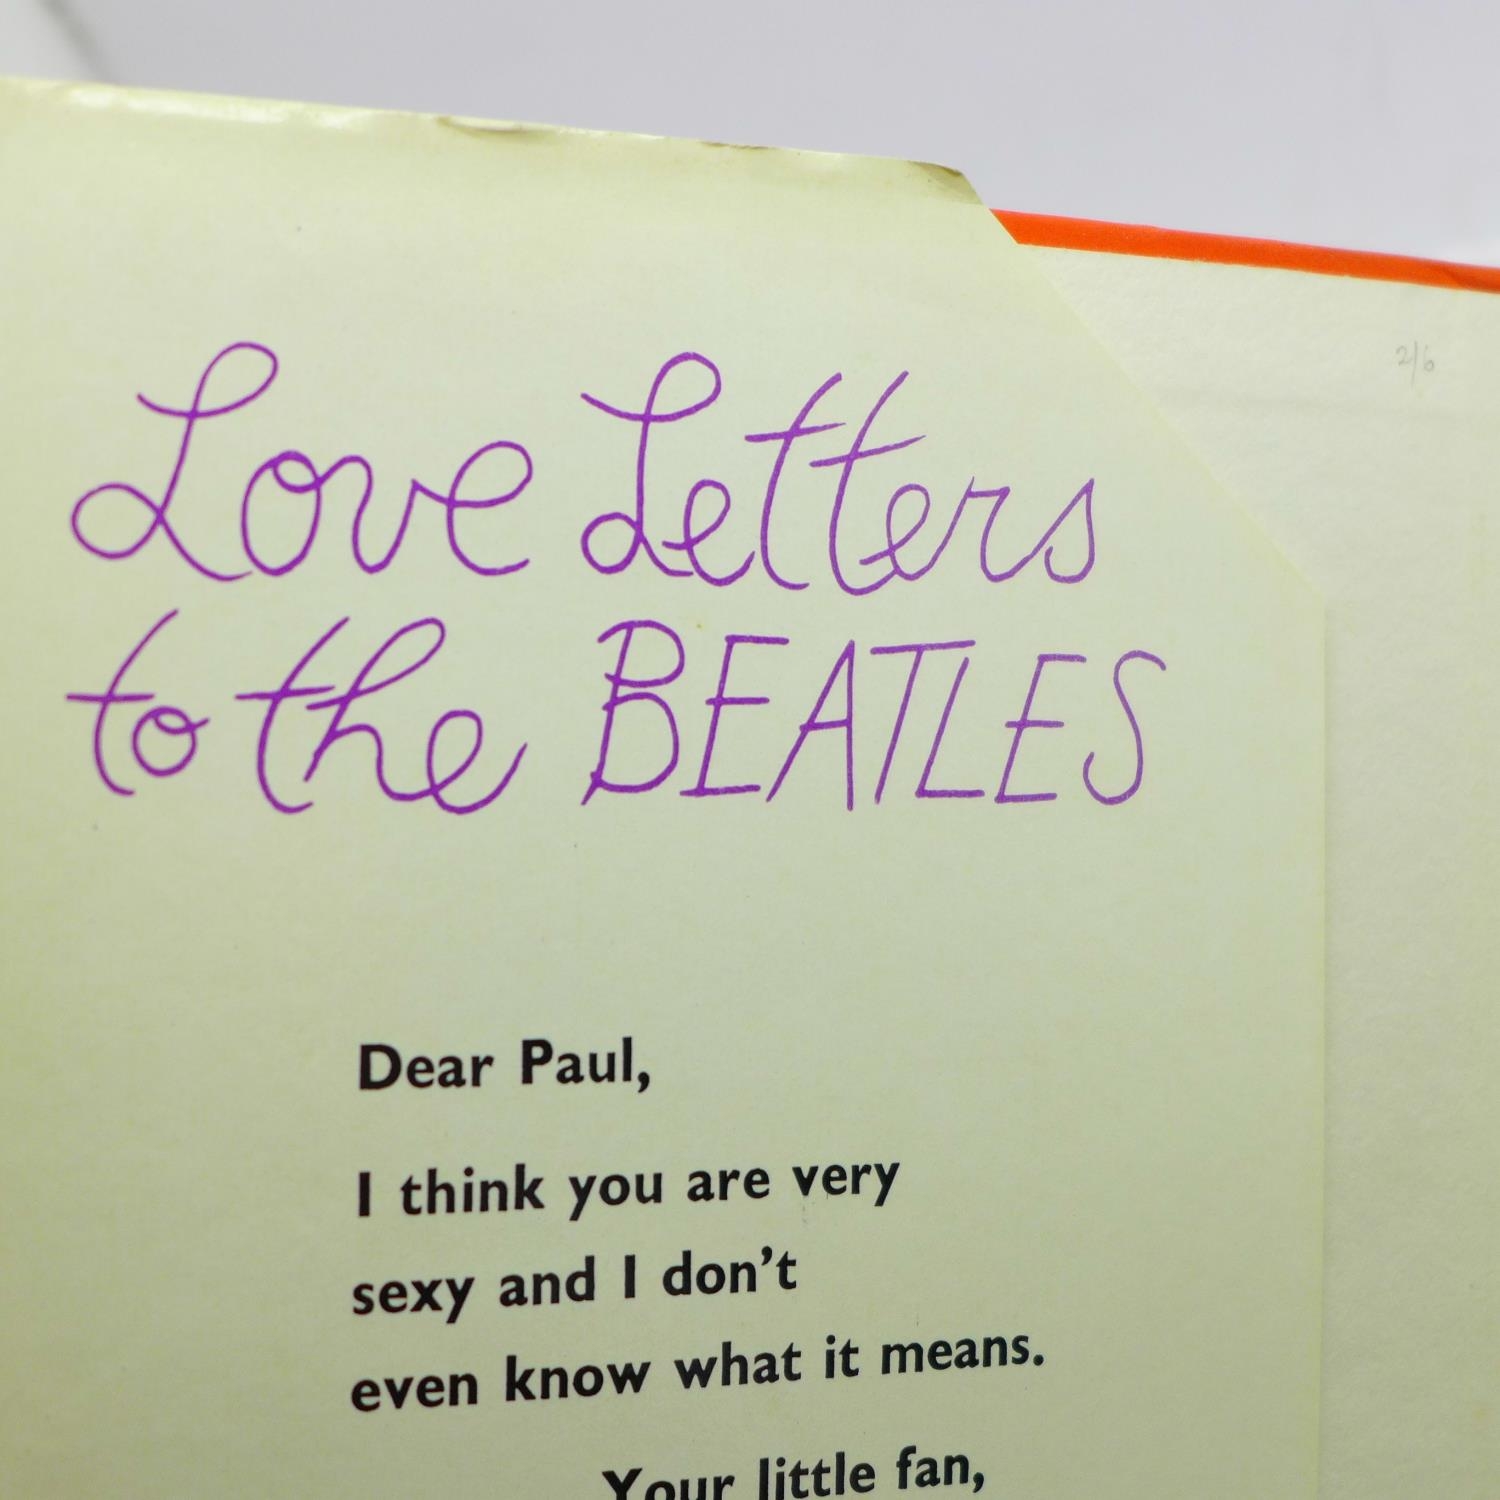 Love Letters
to the BEATLES
2/6
Dear Paul,
I think you are very
sexy and I don't
even know what it means.
Your little fan,